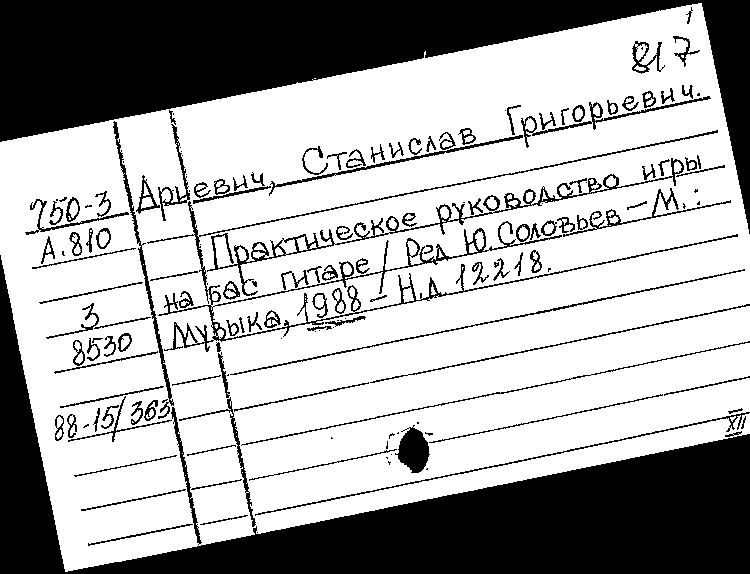 1
817
750-3 Ариевич, Станислав Григорьевич.
А.810 Практическое руководство игры
3 на бас гитаре / Ред Ю. Соловьев – М.:
8530 Музыка, 1988 – Н.д 12218.
88-15/363
XII